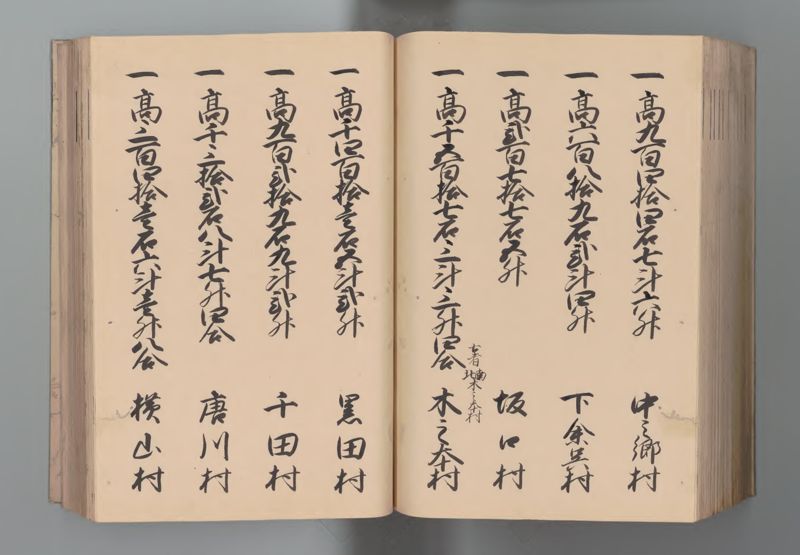 一 高九百四拾四石七斗六升 中之郷村
一 高六百八拾九石弐斗四升 下余呉村
一 高弐百七拾七石五升 坂口村
一 高千五百拾七石三斗三升四合 木之本村
古者南
北木之本村
一 高千四百拾壱石五斗弐升 黒田村
一 高九百弐拾九石九斗弐升 千田村
一 高千三拾弐石八斗七升四合 唐川村
一 高三百四拾壱石六斗壱升八合 横山村